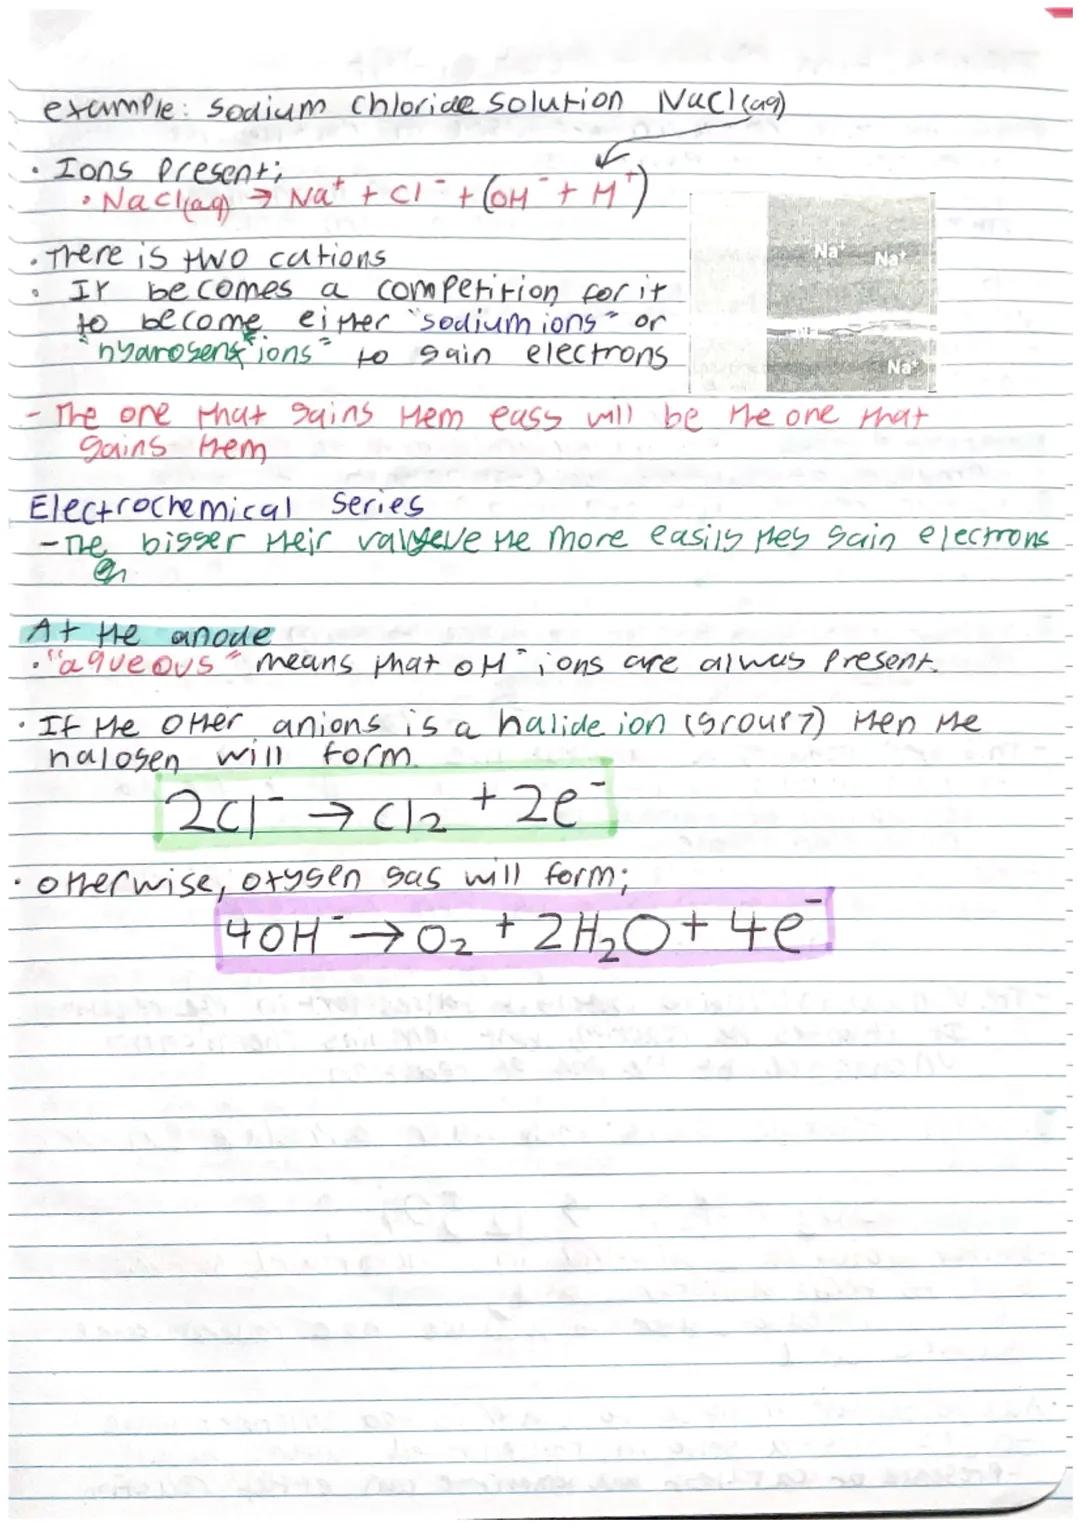 example: Sodium Chloride Solution NaCl(aq)
• Ions Present;
• NaCl(aq) → Na⁺ + Cl⁻ + (OH⁻ + H⁺)
• There is two cations
• It becomes a competition for it
to become either "sodium ions" or
"hydrogens ions" to gain electrons
Na⁺ Na⁺
Na⁺
- The one that gains them easy will be the one that
gains them
Electrochemical Series
- The bigger their the more easily they gain electrons
At the anode
• "aqueous" means that OH⁻ ions are alwas Present.
• If the other anions is a halide ion (group 7) then the
halogen will form.
2Cl⁻ → Cl₂ + 2e⁻
• otherwise, oxygen gas will form;
4OH⁻ → O₂ + 2H₂O + 4e⁻